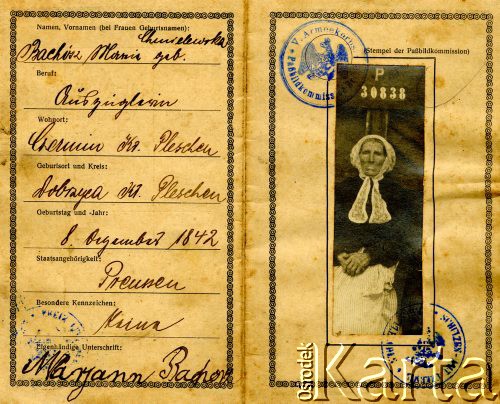 Namen, Vornamen (bei Frauen Geburtsnamen):
Chmielewska
Bachorz Marie geb.
Beruf:
Auszüglerin
Wohnort:
Czermin Kr. Pleschen
Geburtsort und Kreis:
Dobrzyca Kr. Pleschen
Geburtstag und -Jahr:
8. Dezember 1842
Staatsangehörigkeit:
Preussen
Besondere Kennzeichen:
Keine
Eigenhändige Unterschrift:
Maryann
V. Armeekorps
Paßbildkommiss
(Stempel der Paßbildkommission)
P
30838
ośrodek
Karta